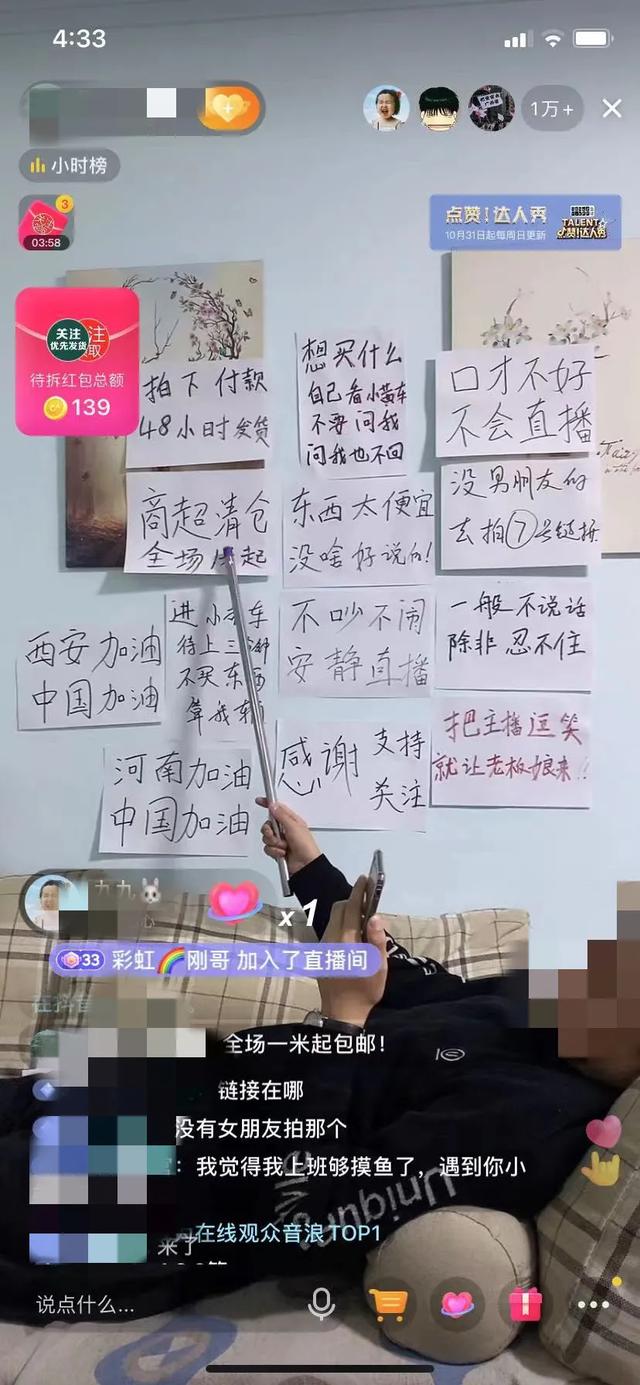 4:33
1万+
小时榜
3
03:58
点赞!达人秀
10月31日起每周日更新
TALENT
点赞!达人秀
关注
优先发货
待拆红包总额
139
拍下付款
48小时发货
想买什么
自己看小黄车
不要问我
问我也不回
口才不好
不会直播
商超清仓
全场 起
东西太便宜
没啥好说的!
没男朋友的
去拍⑦号链接
西安加油
中国加油
进小 车
待上三
不买东西
算我
不吵不闹
安静直播
一般不说话
除非忍不住
河南加油
中国加油
感谢
支持
关注
把主播逗笑
就让老板娘来!!
九九
x1
33 彩虹🌈刚哥 加入了直播间
在抖音
全场一米起包邮!
链接在哪
没有女朋友拍那个
:我觉得我上班够摸鱼了，遇到你小
在线观众音浪TOP1
来了
说点什么...